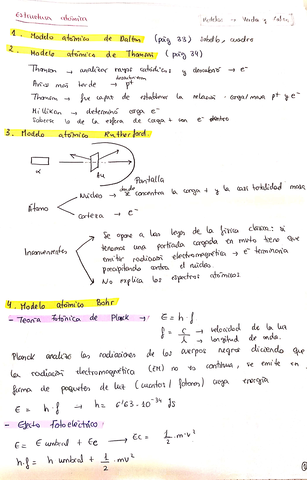 estructura atómica
[Modelos → Verdes y Rosa]
1. Modelo atómico de Dalton (pág 33) subello, cuadro
2. Modelo atómico de Thomson (pág 34)
Thomson → analizar rayos catódicos y descubrió → e⁻
Años más tarde → p⁺
Thomson → fue capaz de establecer la relación carga/masa p⁺ y e⁻
Millikan → determinó carga e⁻
de la esfera de carga + con e⁻ dentro
3. Modelo atómico Rutherford.
α
Au
Pantalla
Átomo
Núcleo → donde se concentra la carga + y la casi totalidad masa
corteza → e⁻
Inconvenientes
Se opone a las leyes de la física clásica: si
tenemos una partícula cargada en mvto tiene que
emitir radiación electromagnética → e⁻ terminaría
precipitando contra el núcleo.
No explica los espectros atómicos.
4. Modelo atómico Bohr
- Teoría fotónica de Planck →: E = h·f
f = c/λ → velocidad de la luz
→ longitud de onda.
Planck analizó las radiaciones de los cuerpos negros diciendo que
la radiación electromagnética (EM) no es continua, se emite en
forma de paquetes de luz (cuantos / fotones) cuya energía
E = h·f → h = 6'63·10⁻³⁴ Js
- Efecto fotoeléctrico:
E = E umbral + Ec → Ec = 1/2 m·v²
h·f = h umbral + 1/2 mv²